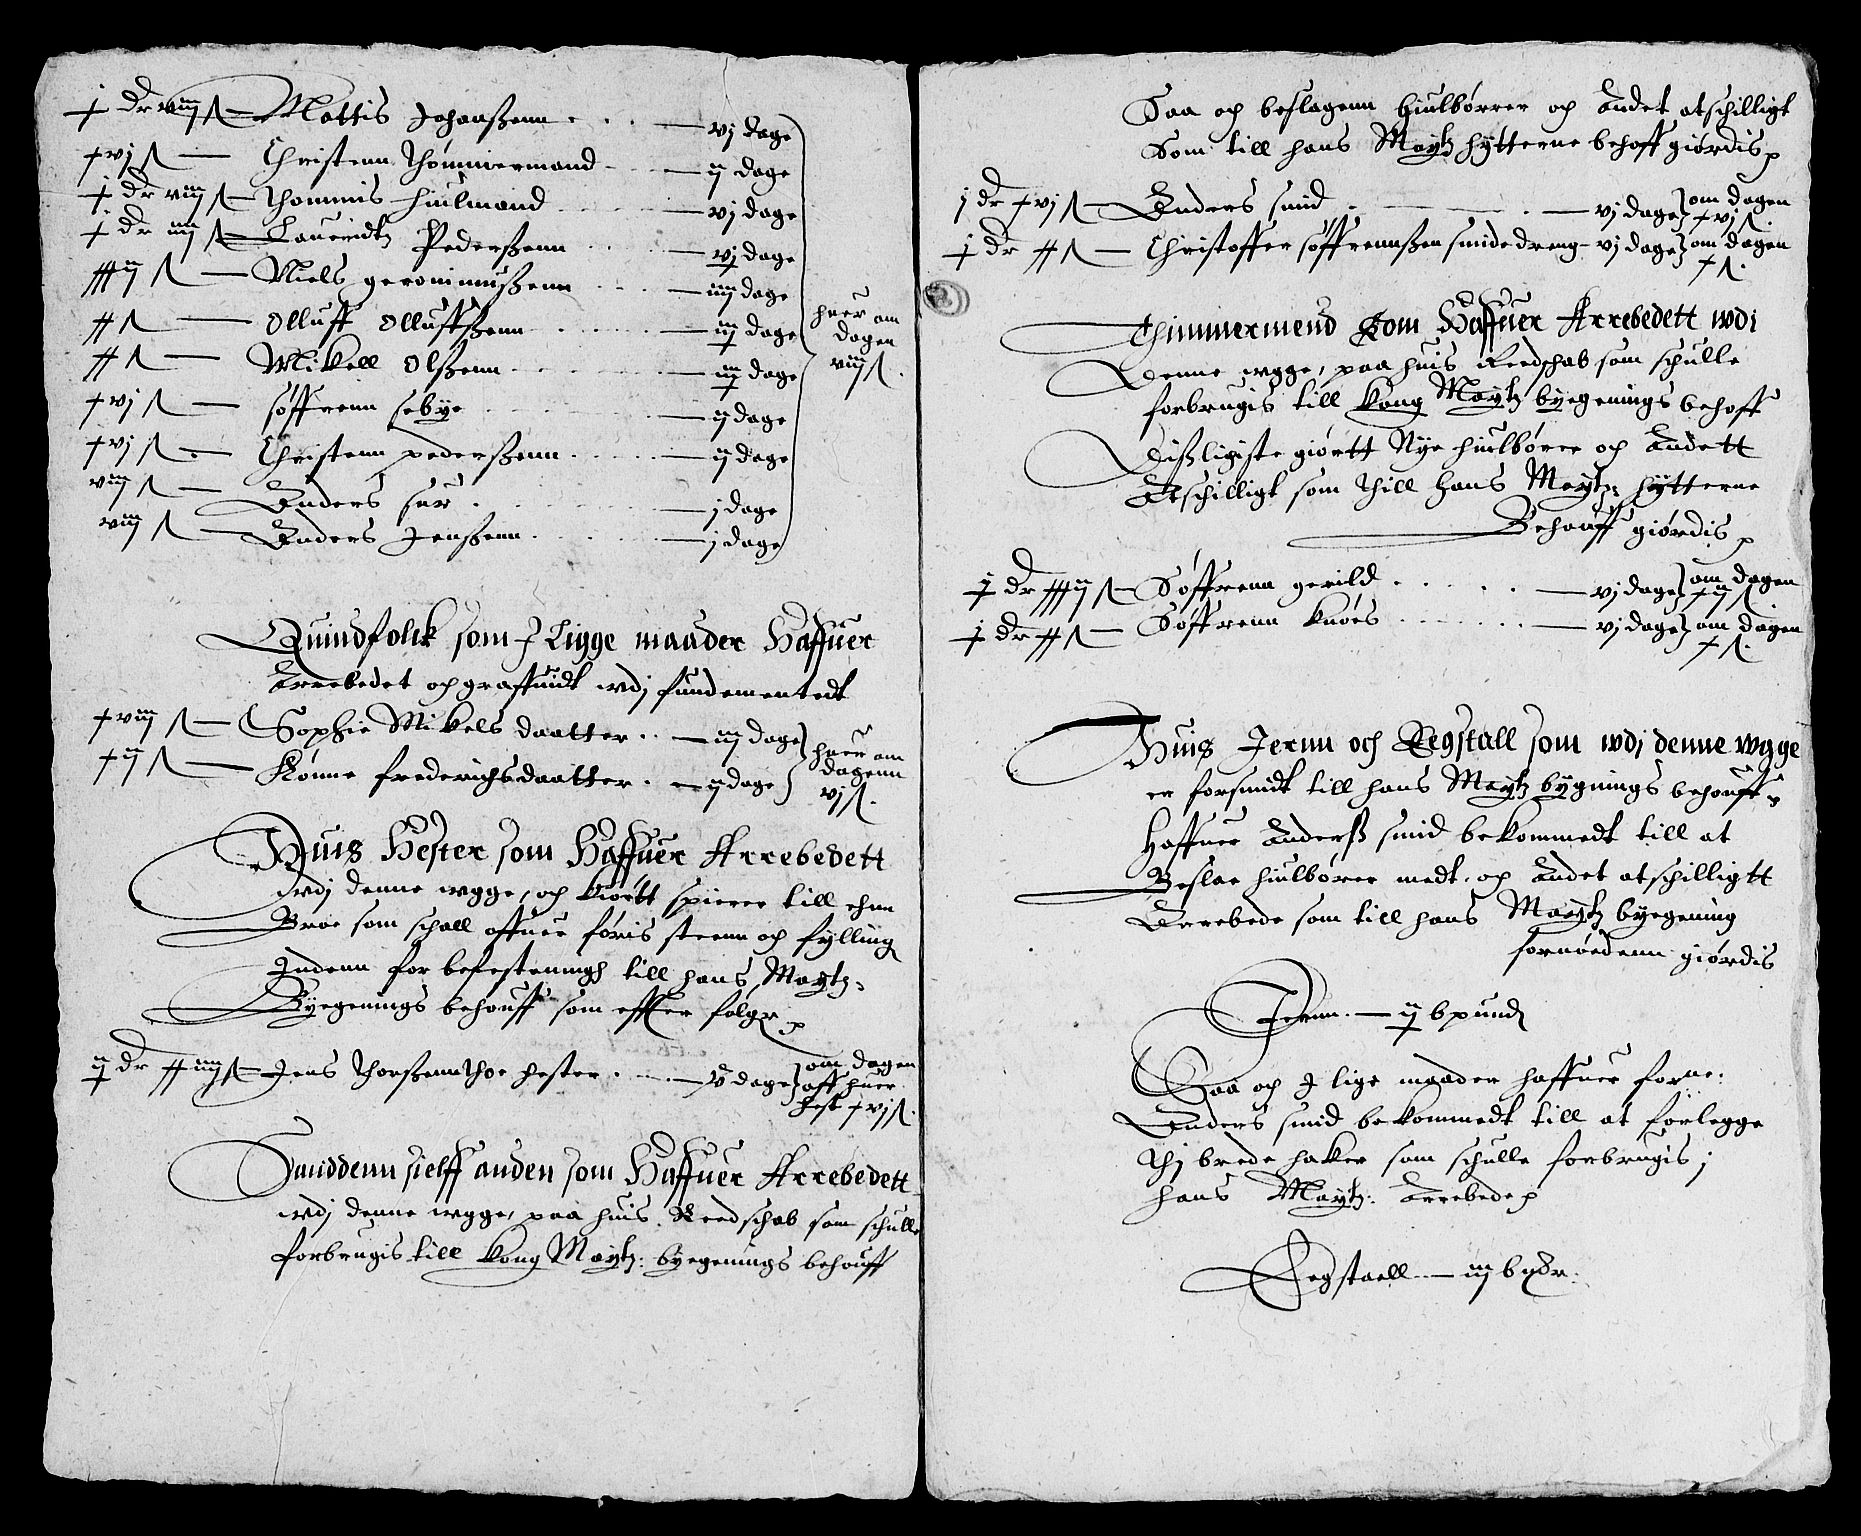 j dr viij ß Mattis Johanßenn vj dage
xvj ß Christenn thømmermand ij dage
j dr viij ß thommis hiulmand vj dage
j dr iiij ß Lauridtz Pederßenn vj dage
xxxij ß Niels geronimußenn iiij dage
xx ß Olluff Olluffßenn iij dage
xx ß Mikell Olßenn iij dage
huer om
dagen
viij ß.
xvj ß søffrenn sebye ij dage
xvj ß Christenn pederßenn ij dage
viij ß Anders sur j dage
viij ß Anders Jenßenn j dage
Quindfolck som J Ligge maader Haffuer
Arrebedet och graffuidt wdj fundementedt
xviij ß Sophie Mikels daatter iij dage
xij ß Kønne frederichsdaatter ij dage
huer om
dagenn
vj ß.
Huis Hester som Haffuer Arrebedett
wdj denne wgge, och kiørtt spierer till ehnn
Broe som schall offuer føris steenn och fylling
Indenn for befestenningh till hans Maytz
Byegenings behouff som effter følger
ij dr xx iiij ß Jens thorßenn thoe hester v dage
om dagen
aff huer
hest xvj ß.
Smiddenn sielff anden som Haffuer Arrebedett
wdj denne wgge, paa huis Reedschab som schulle
forbrugis till kong Maytz: byegenings behouff
Saa och beslagenn hiulbørrer och Andet atschilligt
Som till hans Maytz hytterne behoff giørdis
j dr xvj ß Anders smid vj dage om dagen
xvj ß.
j dr xx ß Christoffer søffrennßen smidedreng vj dage om dagen
x ß.
Thimmermend Som Haffuer Arrebedett wdi
Denne wgge, paa huis Reedschab som schulle
forbrugis till kong Maytz byegenings behoff
Dißligiste giørtt Nye hiulbører och Andett
Atschilligt som thill hans Maytz: hytterne
Behouff giørdis
j dr xxxij ß Søffrenn gerild vj dage om dagen
xij ß
j dr xx ß Søffrenn knøes vj dage om dagen
x ß.
Huis Jernn och Legstall som wdj denne wgge
er forsmidt till hans Maytz bygnings behouff
Haffuer Anderß smid bekommedt till at
Beslae hiulbører medt, och Andet atschilligtt
Arrebede som till hans Maytz byegening
fornøedenn giørdis
Jernn. ij bpund
Saa och J lige maader haffuer forne:
Anders smid bekommedt till at forlegge
thj brede haker som schulle forbrugis j
hans Maytz: Arrebede
Legstaell iij bndr.